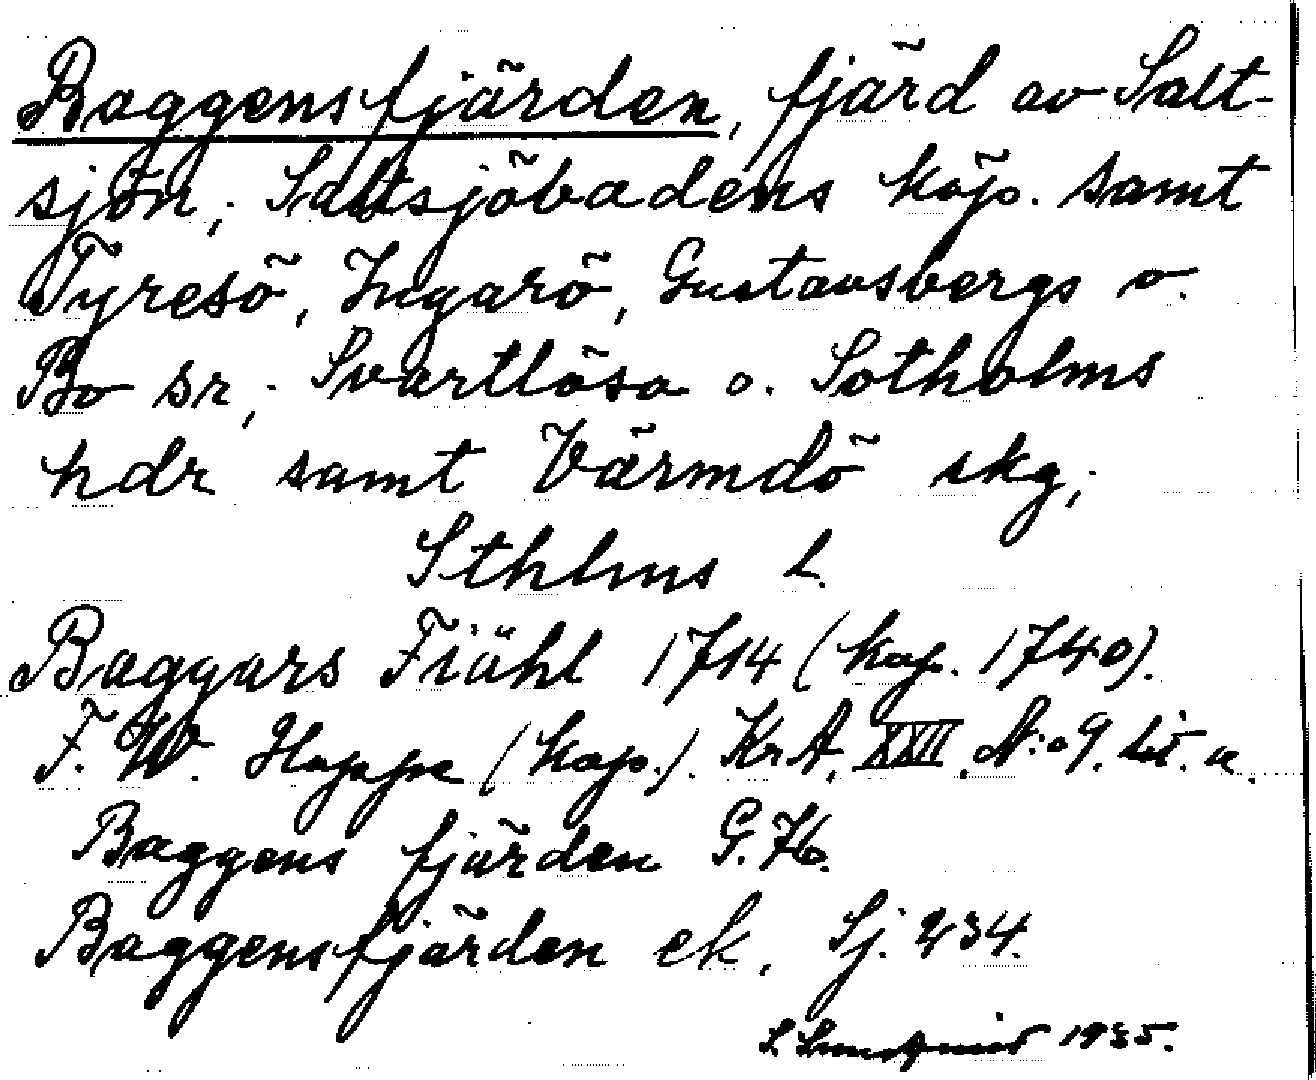 Baggensfjärden, fjärd av Salt-
sjön; Saltsjöbadens köp. samt
Tyresö, Ingarö, Gustavsbergs o.
Bo sr; Svartlösa o. Sotholms
hdr samt Värmdö skg;
Sthlms l.
Baggars Fiähl 1714 (kop. 1740).
F. W. Hoppe (kop.). KrA. XXII. N:o 9. lit. a.
Baggens fjärden G. 76.
Baggensfjärden ek. Sj. 234.
1935.